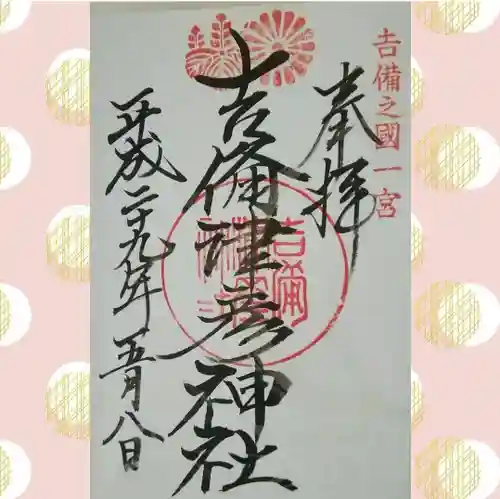 吉備之國一宮
奉拝
吉備津彦神社
平成二十九年五月八日